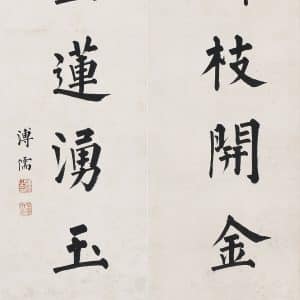 枝開金
蓮湧玉
溥儒